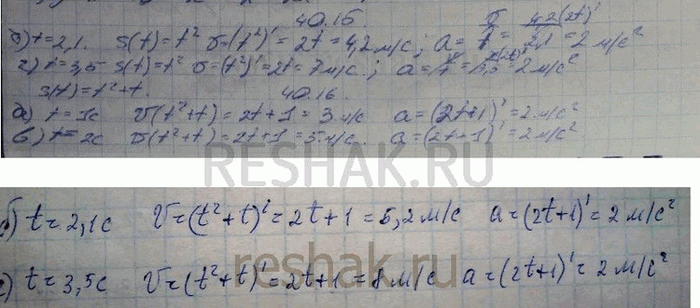 40.15.
б) t=2,1. s(t)=t² υ=(t²)'=2t=4,2м/с; a= =2 м/с²
г) t=3,5 s(t)=t² υ=(t²)'=2t=7м/с; a= =2 м/с²
s(t)=t²+t. 40.16.
а) t=1c υ(t²+t)=2t+1=3 м/с a=(2t+1)'=2м/с²
в) t=2c υ(t²+t)=2t+1=5м/с. a=(2t+1)'=2м/с²
RESHAK.RU
б) t=2,1c V=(t²+t)'=2t+1=5,2м/с a=(2t+1)'=2м/с²
reshak.ru
г) t=3,5c V=(t²+t)'=2t+1=8м/с a=(2t+1)'=2м/с²